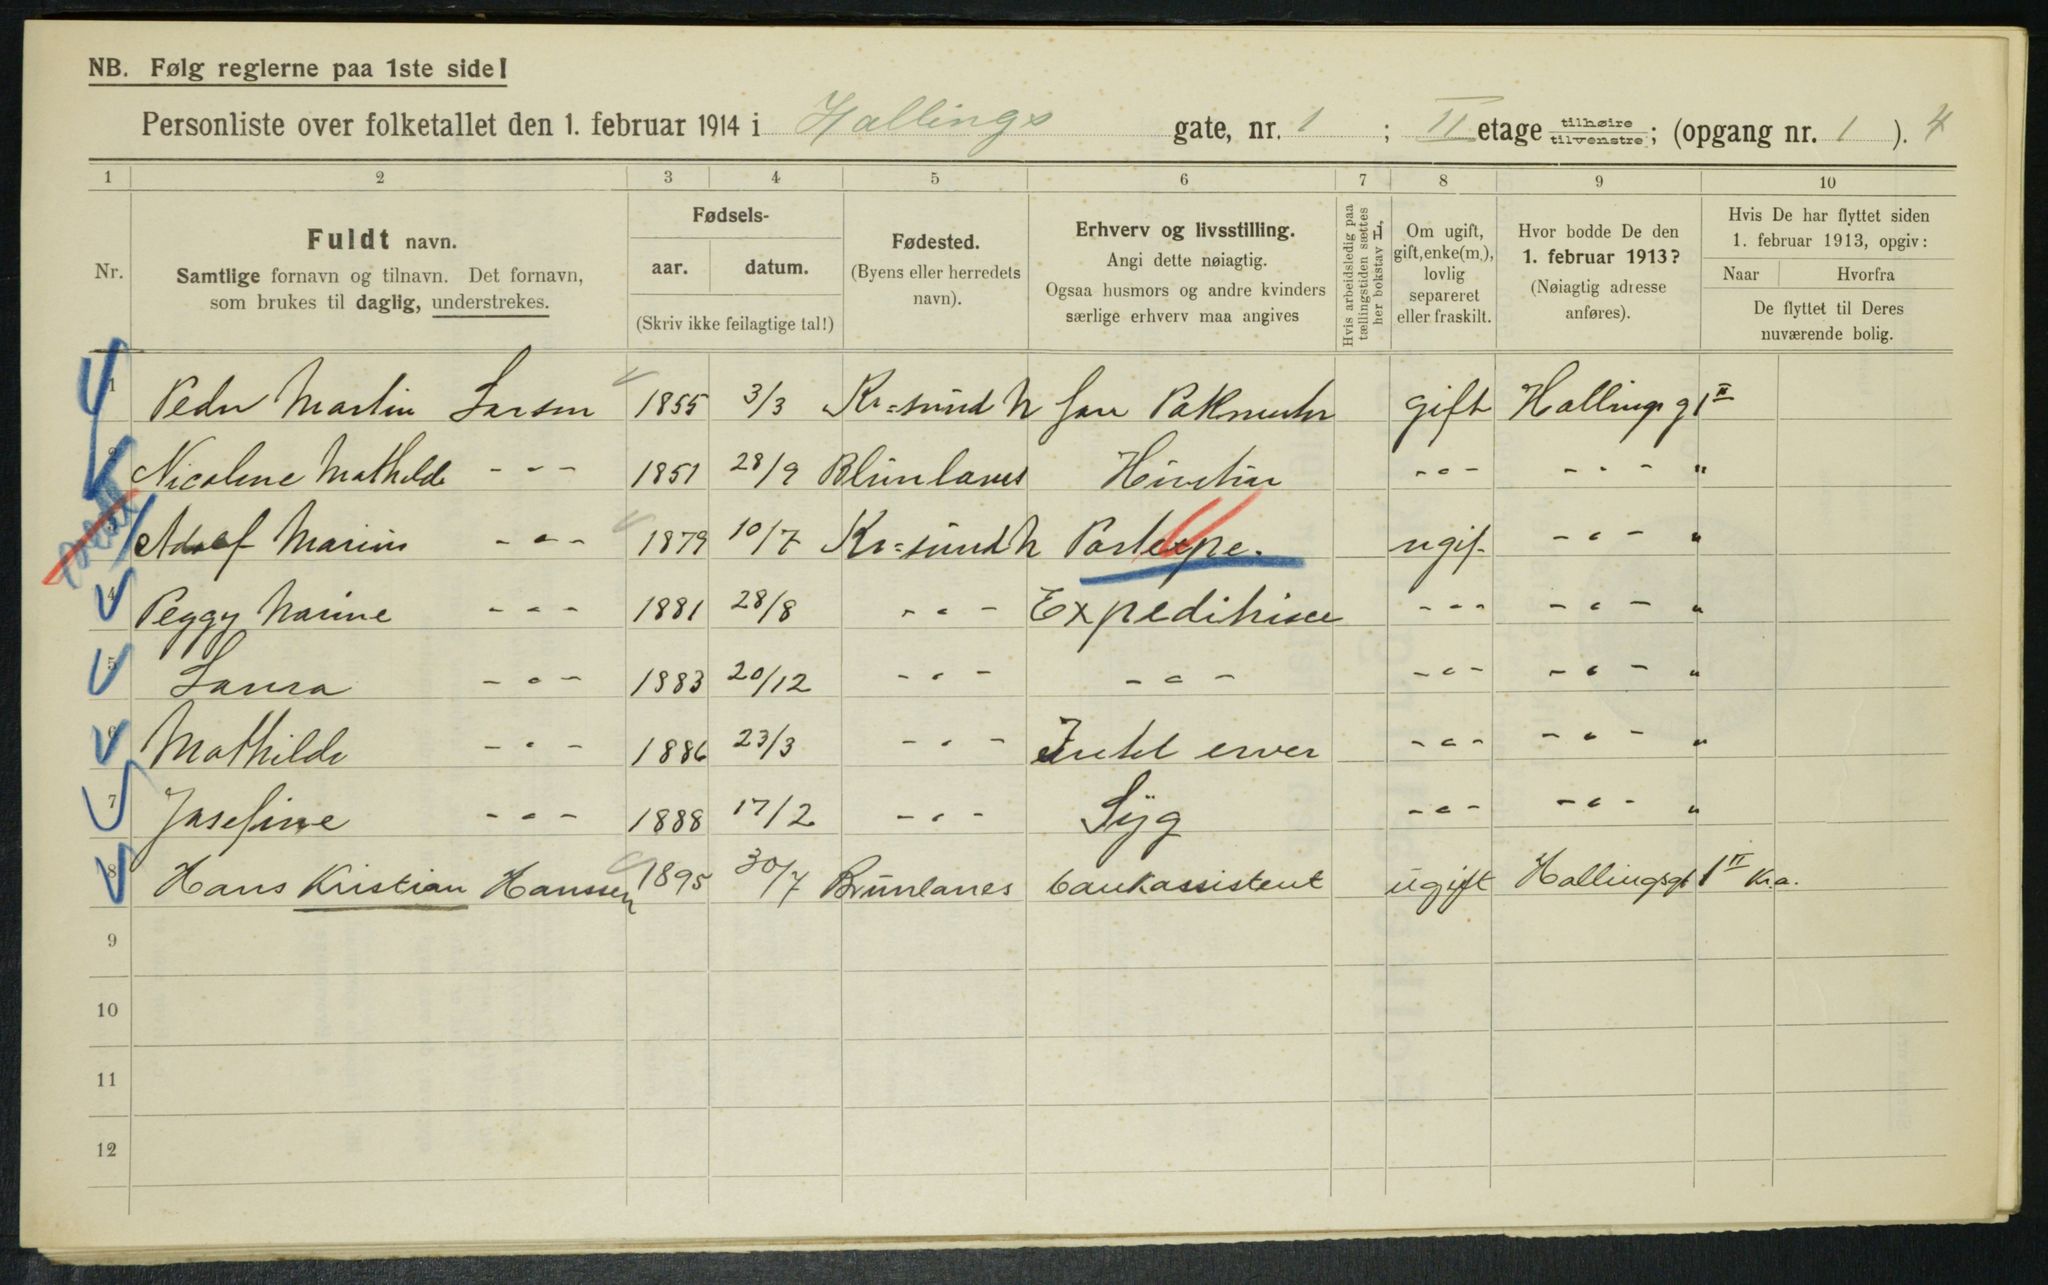 NB. Følg reglerne paa 1ste side!
Personliste over folketallet den 1. februar 1914 i Hallings gate, nr. 1 ; II etage tilhøire tilvenstre; (opgang nr. 1 ). 4
1 2 3 4 5 6 7 8 9 10
Nr.
Fuldt navn.
Samtlige fornavn og tilnavn. Det fornavn,
som brukes til daglig, understrekes.
Fødsels-
aar. datum.
(Skriv ikke feilagtige tal!)
Fødested.
(Byens eller herredets
navn).
Erhverv og livsstilling.
Angi dette nøiagtig.
Ogsaa husmors og andre kvinders
særlige erhverv maa angives
Hvis arbeidsledig paa
tællingstiden sættes
her bokstav L,
Om ugift,
gift, enke(m.),
lovlig
separeret
eller fraskilt.
Hvor bodde De den
1. februar 1913?
(Nøiagtig adresse
anføres).
Hvis De har flyttet siden
1. februar 1913, opgiv:
Naar Hvorfra
De flyttet til Deres
nuværende bolig.
1 Peder Martin Larsen 1855 3/3 Kr=sund N gift Hallings g 1 II
2 Nicoline Mathilde - " - 1851 28/9 - " - - " - "
3 Adolf Marius - " - 1879 10/7 Kr=sund N Postexpe. ugif. - " - "
4 Peggy Marine - " - 1881 28/8 - " - Expeditrise - " - - " - "
5 Laura - " - 1883 20/12 - " - - " - - " - - " - "
6 Mathilde - " - 1886 23/3 - " - Intet erver - " - - " - "
7 Josefine - " - 1888 17/2 - " - Syg - " - - " - "
8 Hans Kristian Hanssen 1895 30/7 Brunlanes bankassistent ugift Hallingsgt 1 II Kra.
9
10
11
12